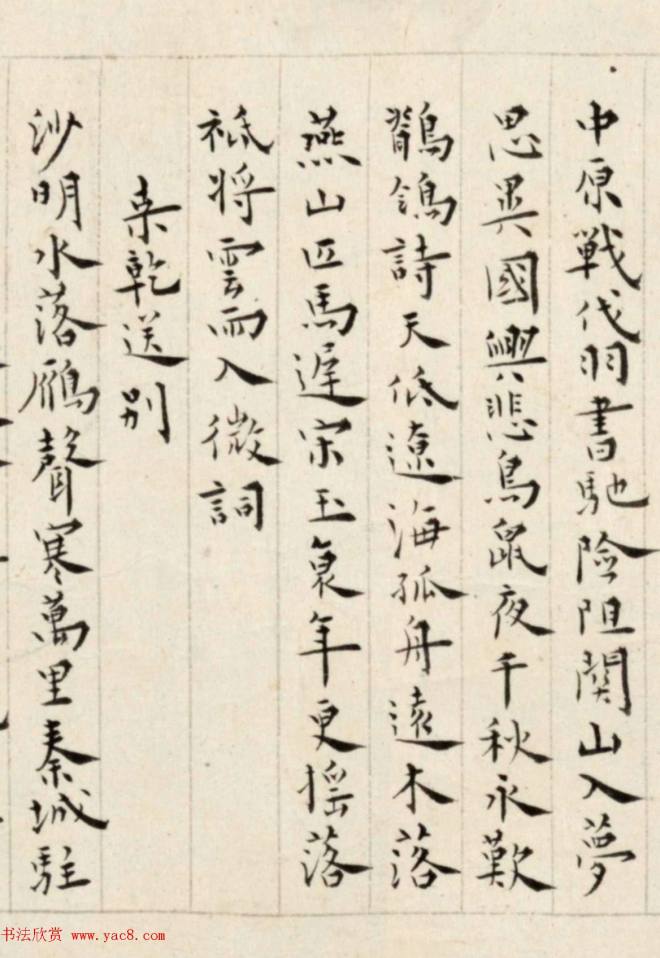 中原戰伐羽書馳險阻関山入夢
思異國興悲鳥鼠夜千秋永歎
鶺鴒詩天低遼海孤舟遠木落
燕山匹馬遲宋玉衰年更搖落
祗将雲雨入微詞
桒乾送别
沙明水落鴈聲寒萬里秦城駐
书法欣赏 www.yac8.com